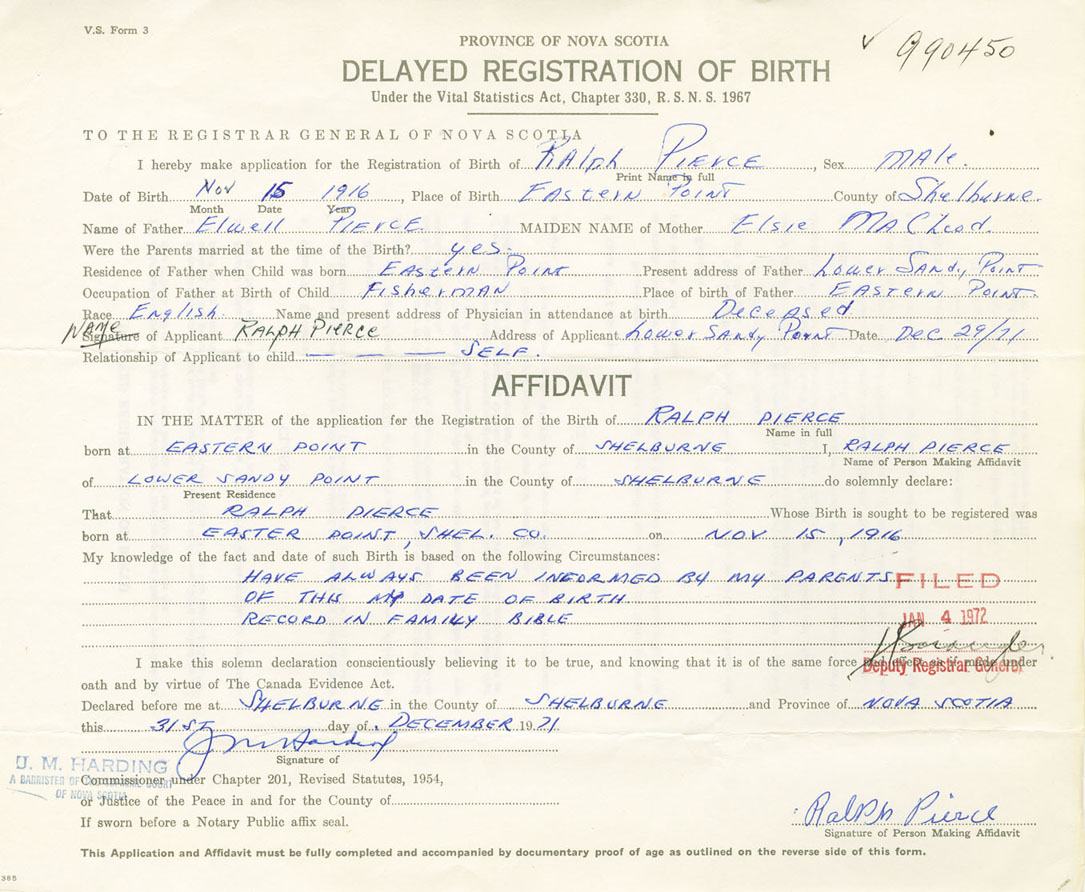 V.S. Form 3
PROVINCE OF NOVA SCOTIA
✓ 990450
DELAYED REGISTRATION OF BIRTH
Under the Vital Statistics Act, Chapter 330, R. S. N. S. 1967
TO THE REGISTRAR GENERAL OF NOVA SCOTIA
I hereby make application for the Registration of Birth of RALPH PIERCE, Sex MALE.
Print Name in full
Date of Birth Nov 15 1916, Place of Birth EASTERN POINT County of Shelburne.
Month Date Year
Name of Father Elwell PIERCE. MAIDEN NAME of Mother Elsie MACLeod.
Were the Parents married at the time of the Birth? yes.
Residence of Father when Child was born EASTERN POINT Present address of Father Lower SANDY POINT
Occupation of Father at Birth of Child FISHERMAN Place of birth of Father EASTERN POINT.
Race English. Name and present address of Physician in attendance at birth Deceased
Name
Signature of Applicant RALPH PIERCE Address of Applicant Lower SANDY POINT Date Dec 29/71
Relationship of Applicant to child — — — SELF.
AFFIDAVIT
IN THE MATTER of the application for the Registration of the Birth of RALPH PIERCE
Name in full
born at EASTERN POINT in the County of SHELBURNE I, RALPH PIERCE
Name of Person Making Affidavit
of LOWER SANDY POINT in the County of SHELBURNE do solemnly declare:
Present Residence
That RALPH PIERCE Whose Birth is sought to be registered was
born at EASTER POINT, SHEL. CO. on NOV 15, 1916
My knowledge of the fact and date of such Birth is based on the following Circumstances:
HAVE ALWAYS BEEN INFORMED BY MY PARENTS
OF THIS MY DATE OF BIRTH
RECORD IN FAMILY BIBLE
FILED
JAN 4 1972
Deputy Registrar General
I make this solemn declaration conscientiously believing it to be true, and knowing that it is of the same force under
oath and by virtue of The Canada Evidence Act.
Declared before me at SHELBURNE in the County of SHELBURNE and Province of NOVA SCOTIA
this 31ST day of DECEMBER 1971
J M Harding
Signature of
J. M. HARDING
A BARRISTER OF COURT
OF NOVA SCOTIA
Commissioner under Chapter 201, Revised Statutes, 1954,
or Justice of the Peace in and for the County of
If sworn before a Notary Public affix seal.
Ralph Pierce
Signature of Person Making Affidavit
This Application and Affidavit must be fully completed and accompanied by documentary proof of age as outlined on the reverse side of this form.
385